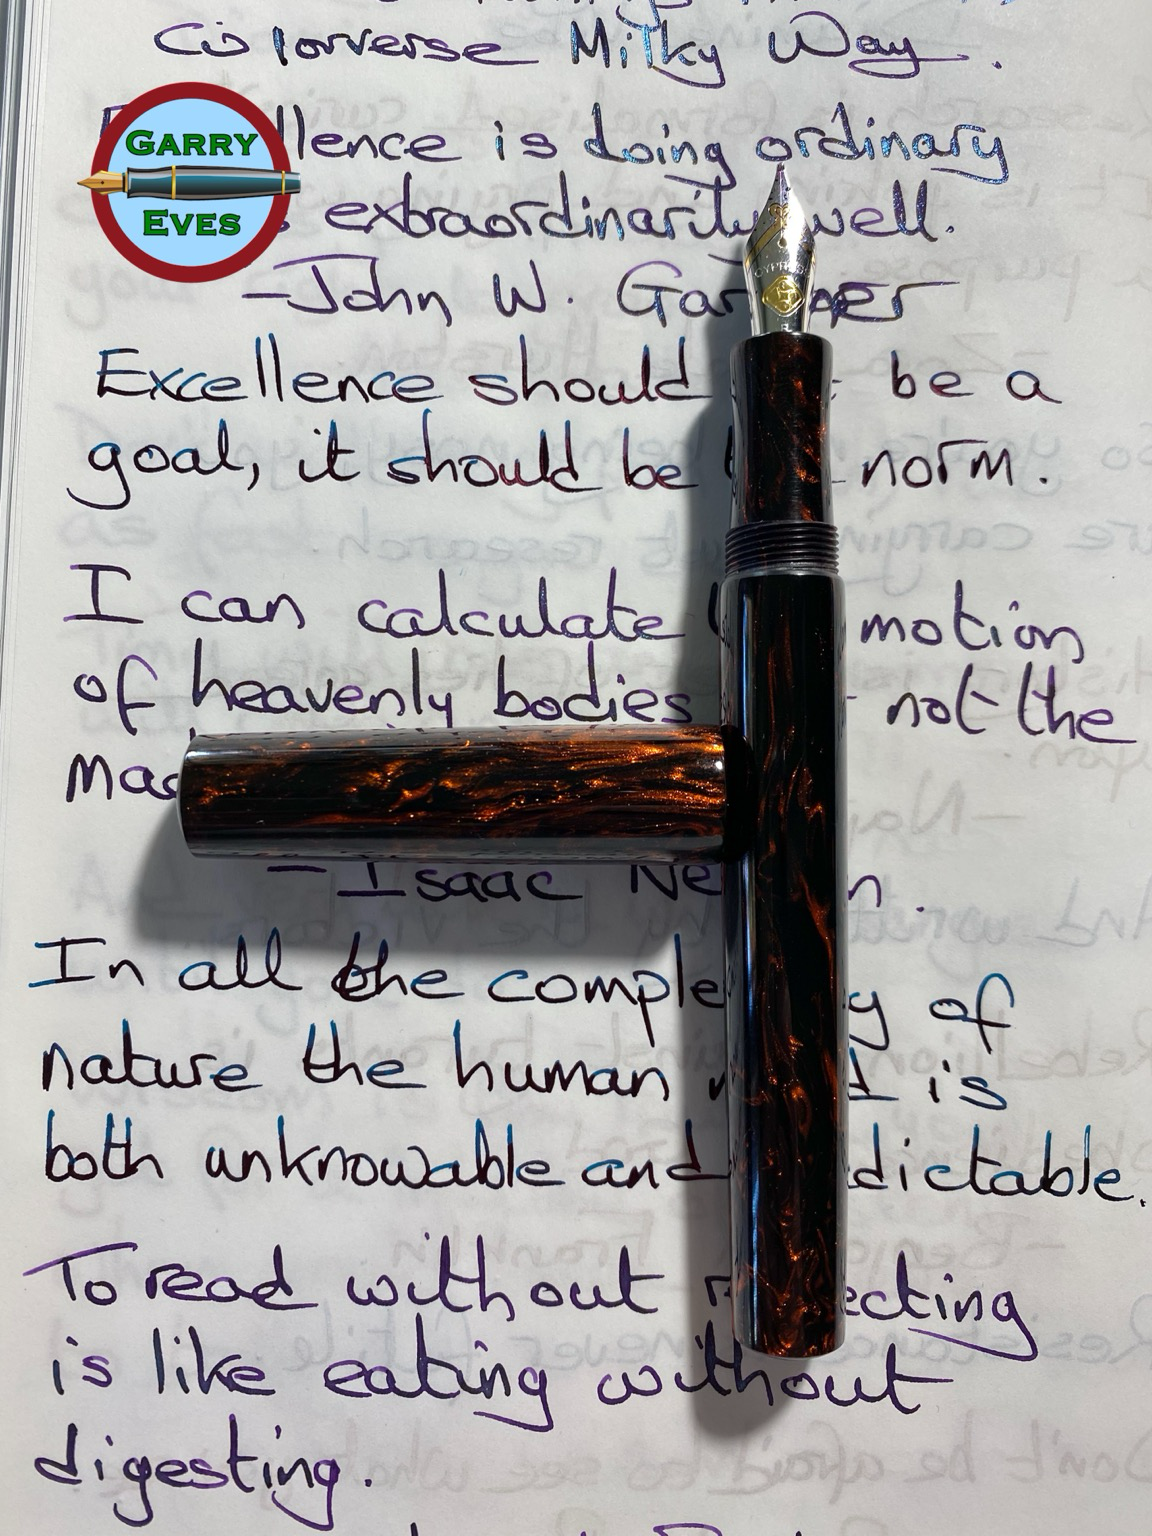 Colorverse Milky Way.
GARRY
EVES
llence is doing ordinary
extraordinarily well.
-John W. Gardner
Excellence should be a
goal, it should be norm.
I can calculate motion
of heavenly bodies not the
- Isaac Newton.
In all the complexity of
nature the human is
both unknowable and
To read without
is like eating without
digesting.